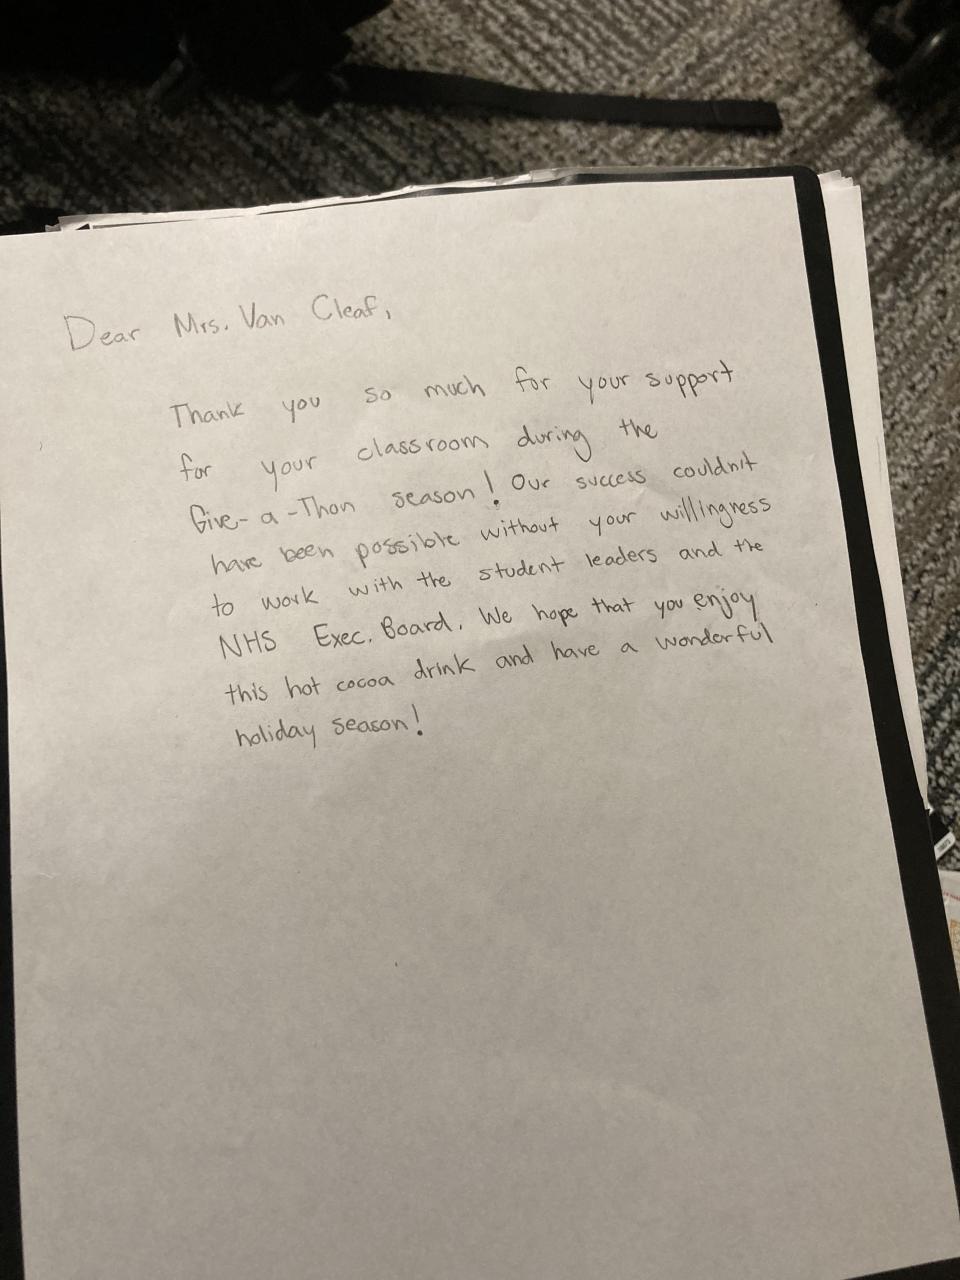 Dear Mrs. Van Cleaf,
Thank you so much for your support
for your classroom during the
Give-a-Thon season! Our success couldn't
have been possible without your willingness
to work with the student leaders and the
NHS Exec. Board. We hope that you enjoy
this hot cocoa drink and have a wonderful
holiday season!